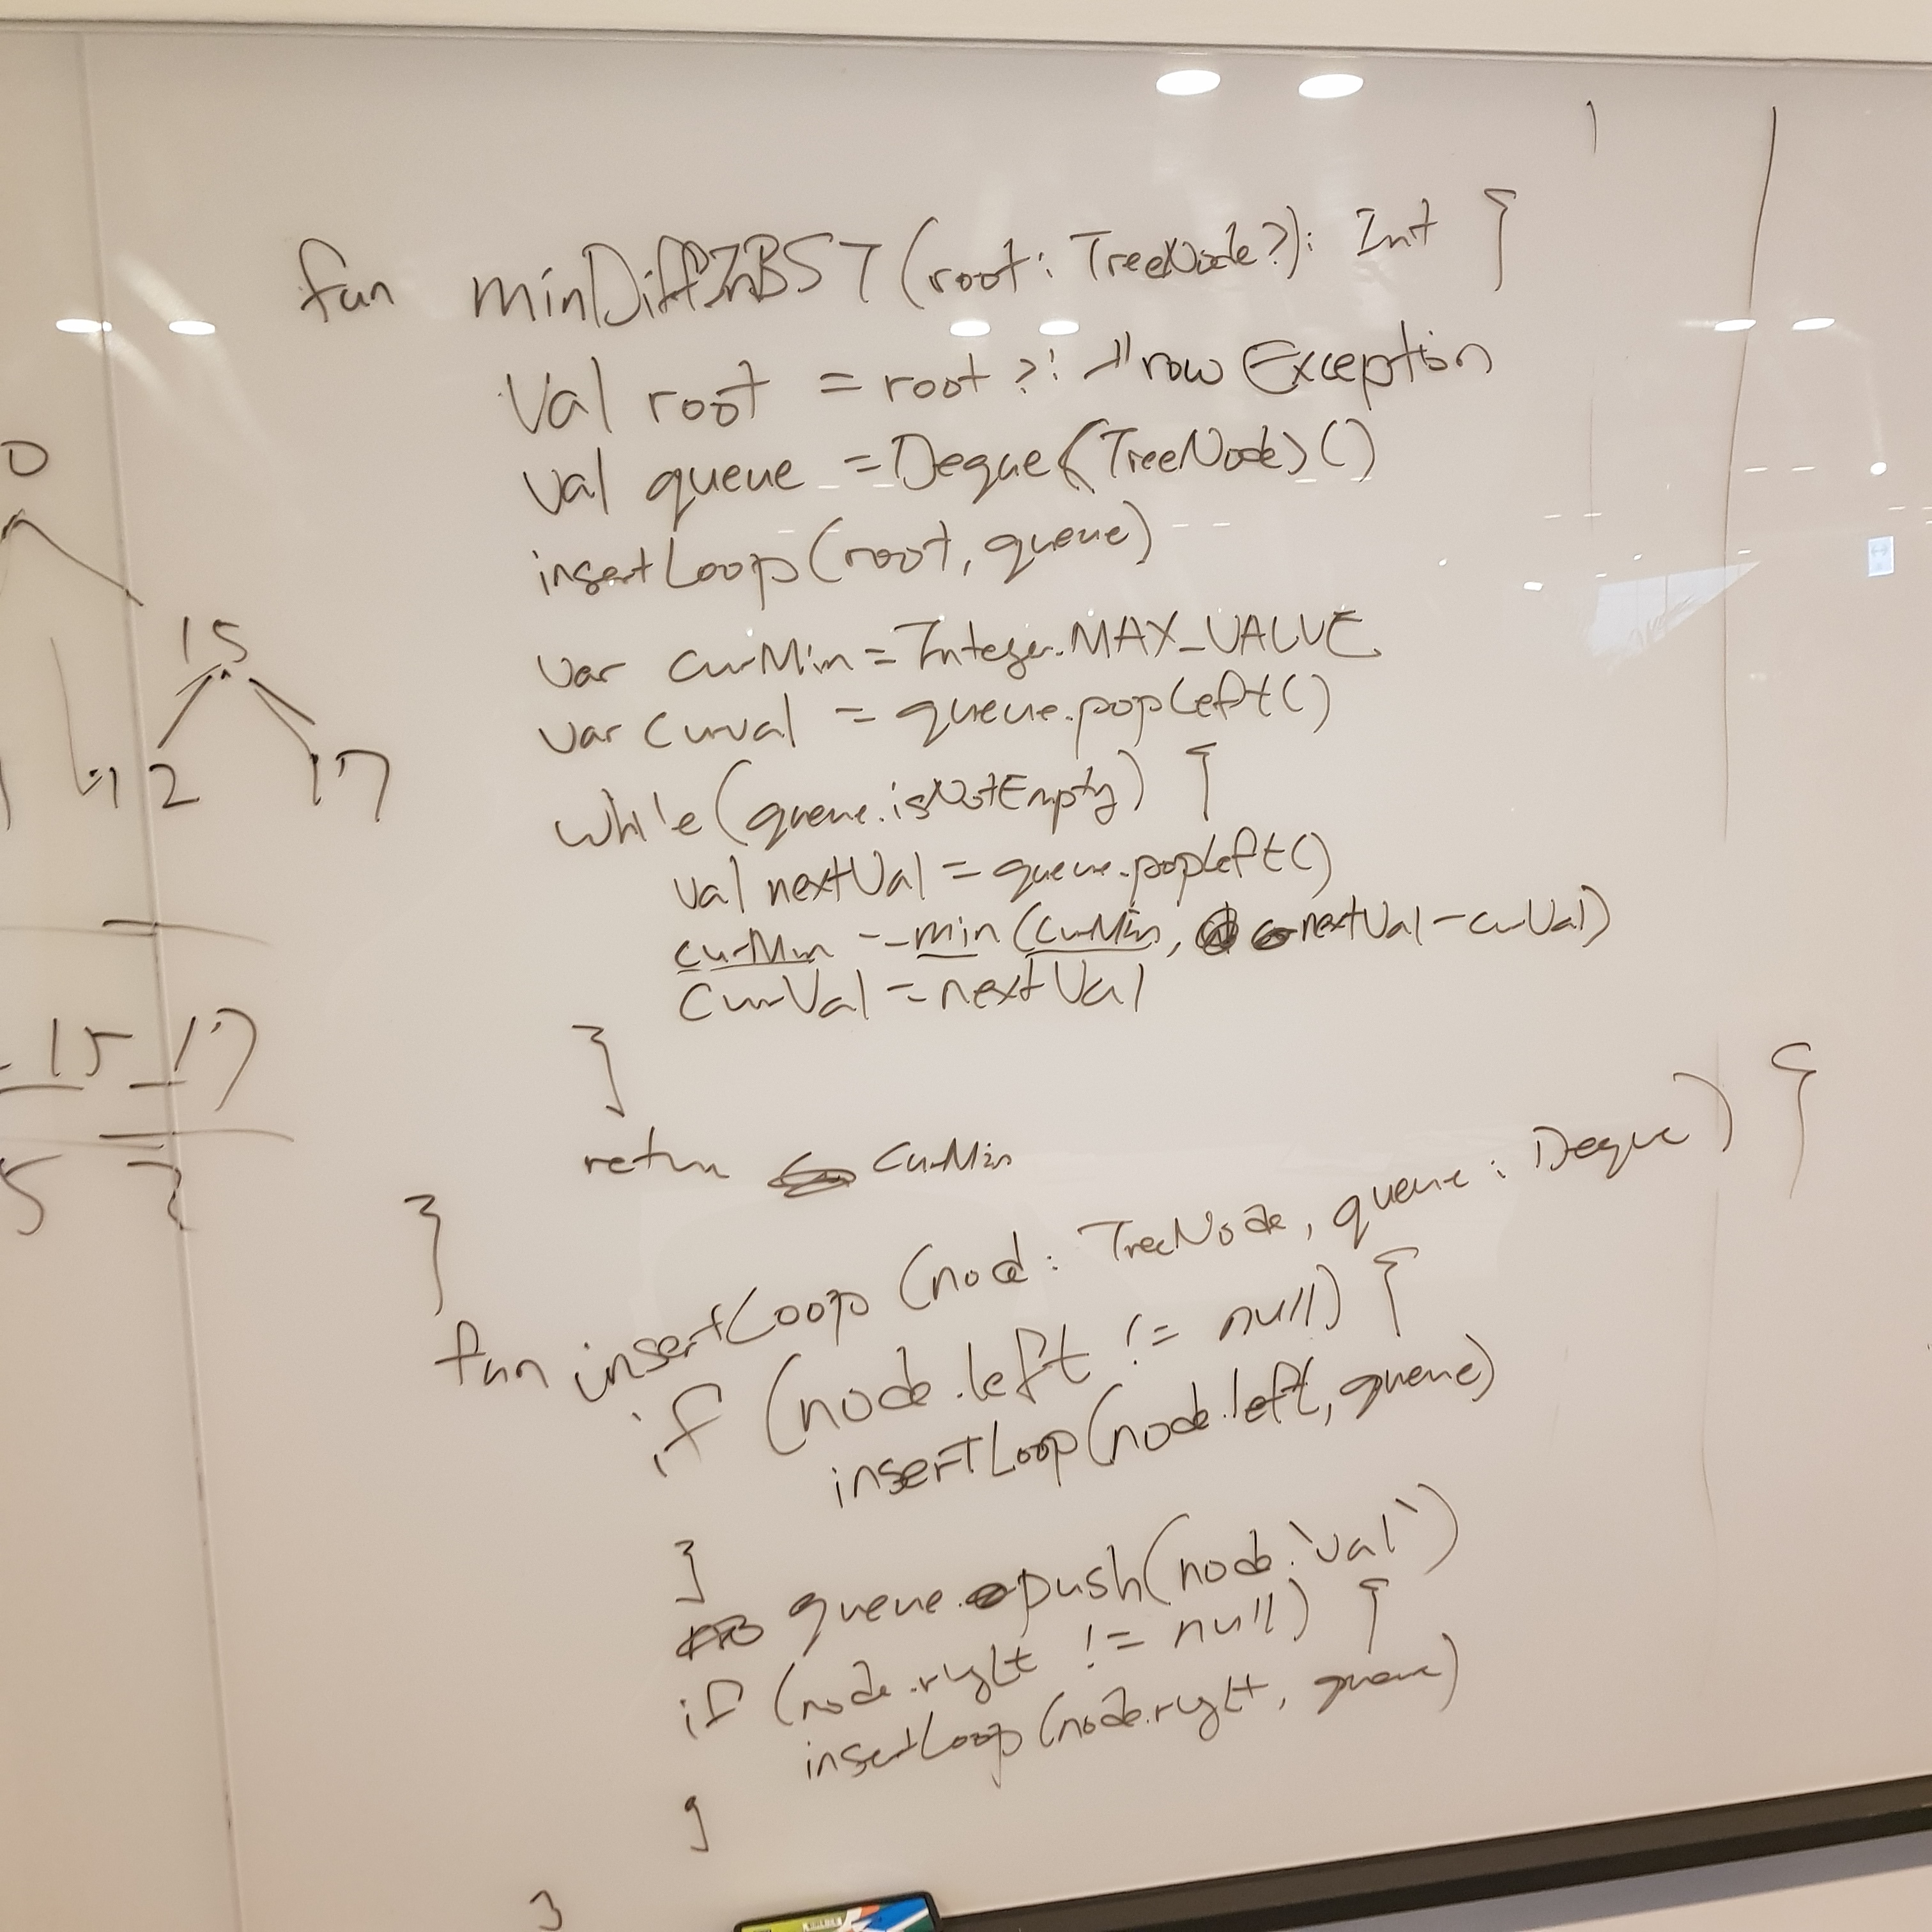 fun minDiffInBST(root: TreeNode?): Int {
val root = root ?: throw Exception
val queue = Deque<TreeNode>()
insertLoop(root, queue)
var curMin = Integer.MAX_VALUE
var curVal = queue.popLeft()
while (queue.isNotEmpty) {
val nextVal = queue.popLeft()
curMin = min(curMin, nextVal - curVal)
curVal = nextVal
}
return curMin
}
fun insertLoop (node: TreeNode, queue: Deque) {
if (node.left != null) {
insertLoop(node.left, queue)
}
queue.push(node.`val`)
if (node.right != null) {
insertLoop(node.right, queue)
}
}
0
15
12
17
15 17
5 2